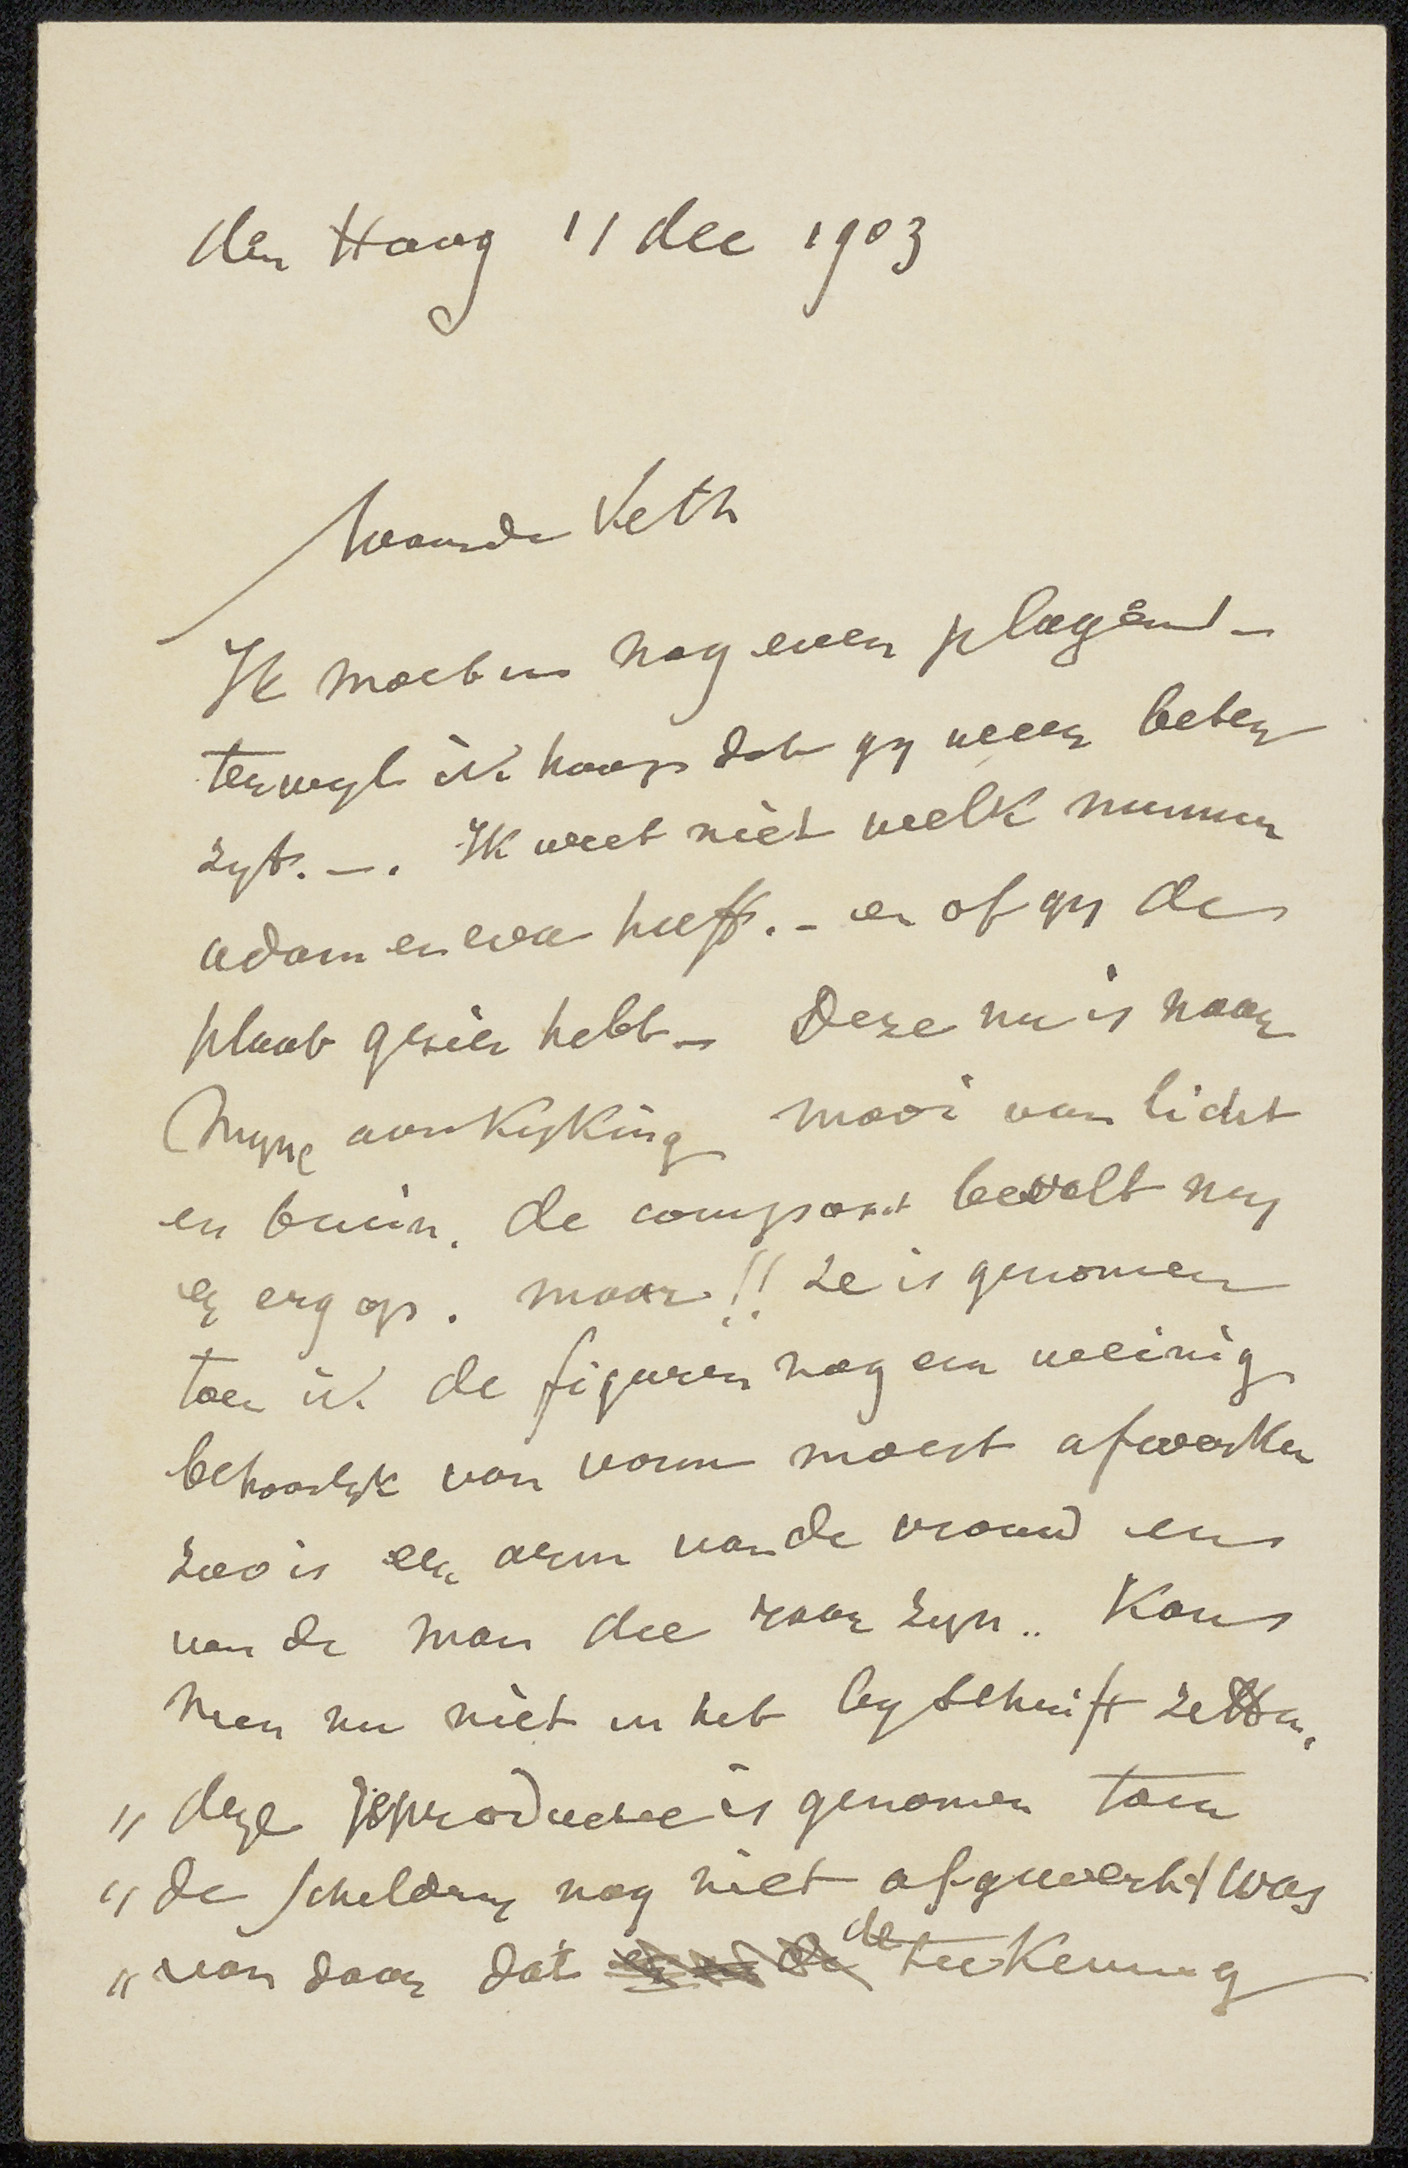 den Haag 11 dec 1903
Waarde Veth
Ik moet u nog even plagen! -
terwyl ik hoop dat gy weer beter
zyt. -. Ik weet niet welk nummer
adam en eva heeft. - en of gy de
plaat gezien hebt - Deze nu is naar
Myne aankyking mooi van licht
en bruin. de composit bevalt my
er erg op. maar!! ze is genomen
toen ik de figuren nog een weinig
behoorlyk van vorm moest afwerken
zoo is een arm van de vrouw en
van de man die raar zyn.. Kan
men nu niet in het byschrift zetten.
„ deze reproductie is genomen toen
„ de schildery nog niet afgewerkt was
„ van daar dat de teekening